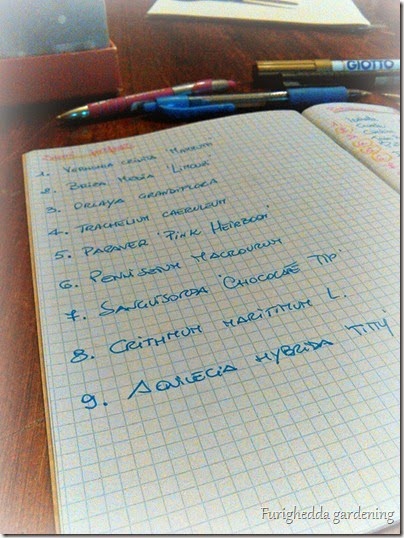 1.
2. BRIZA MEDIA 'LIMOUZI'
3. ORLAYA GRANDIFLORA
4. TRACHELIUM CAERULEUM
5. PAPAVER 'PINK
6. PENNISETUM MACROURUM
7. SANGUISORBA 'CHOCOLATE TIP'
8. CRITHMUM MARITIMUM L.
9. AQUILEGIA HYBRIDA 'TITTY'
GIOTTO
Furighedda gardening